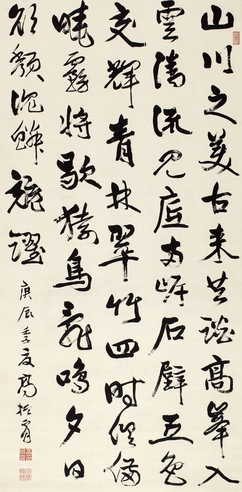 山川之美古来共談高峯入
雲清流見底両岸石壁五色
交輝青林翠竹四時俱備
曉霧將歇猿鳥亂鳴夕日
欲頹沉鱗競躍
庚辰季夏